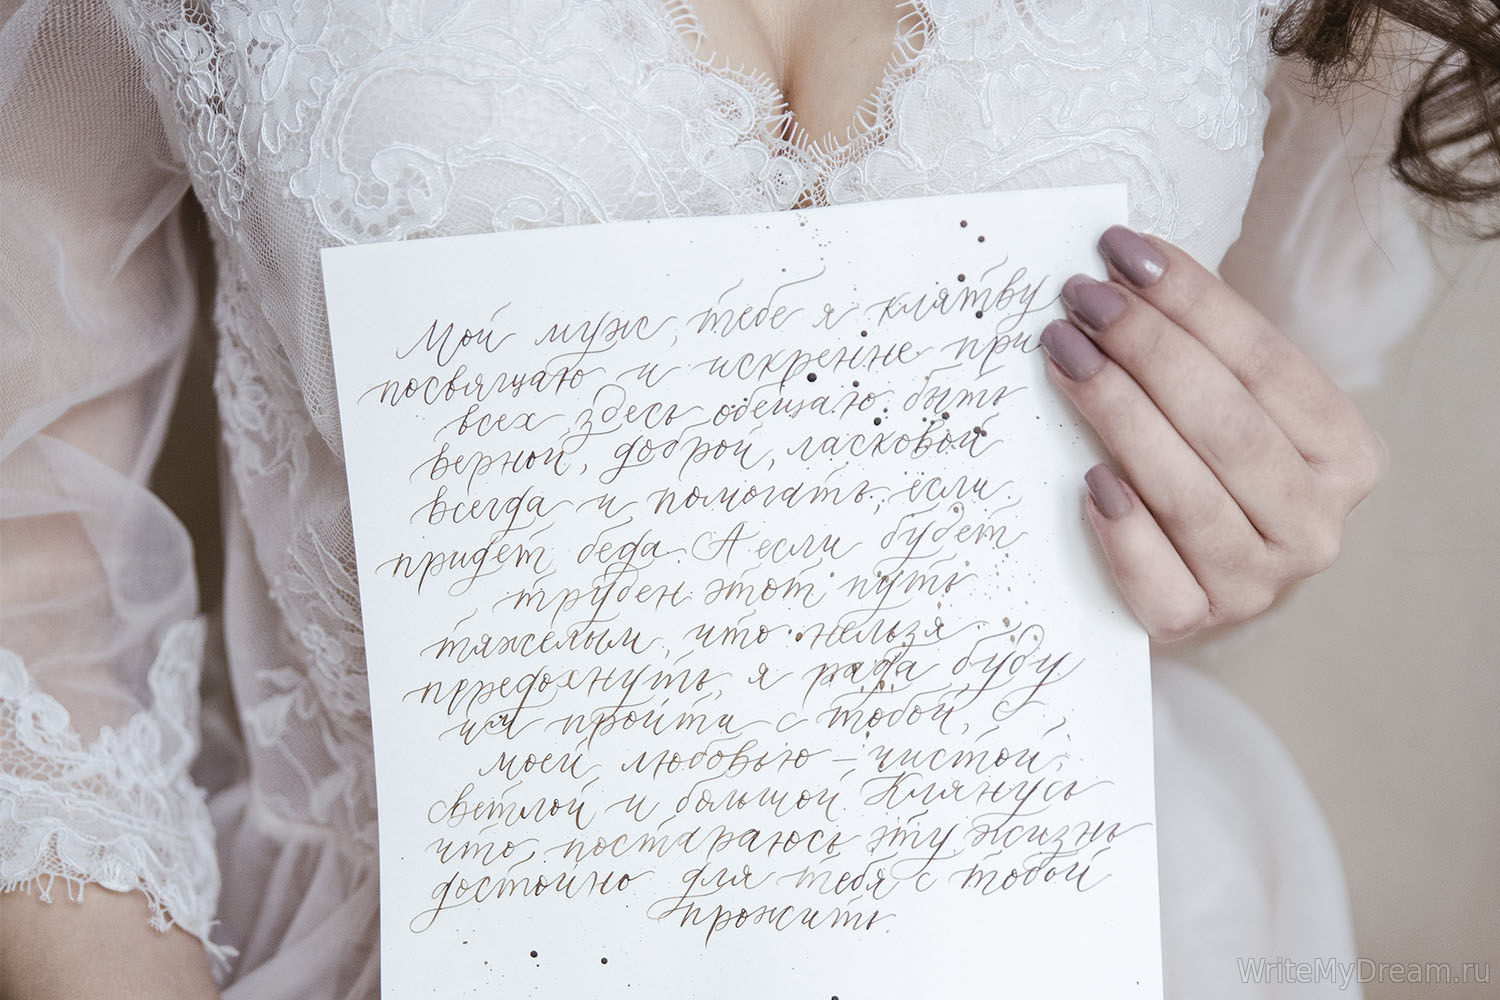 Мой муж, тебе я клятву
посвящаю и искренне при
всех здесь обещаю быть
верной, доброй, ласковой
всегда и помогать, если
придет беда. А если будет
труден этот путь
тяжелым, что нельзя
передохнуть, я рада буду
им пройти с тобой, с
моей любовью – чистой,
светлой и большой. Клянусь
что, постараюсь эту жизнь
достойно для тебя с тобой
прожить.
WriteMyDream.ru